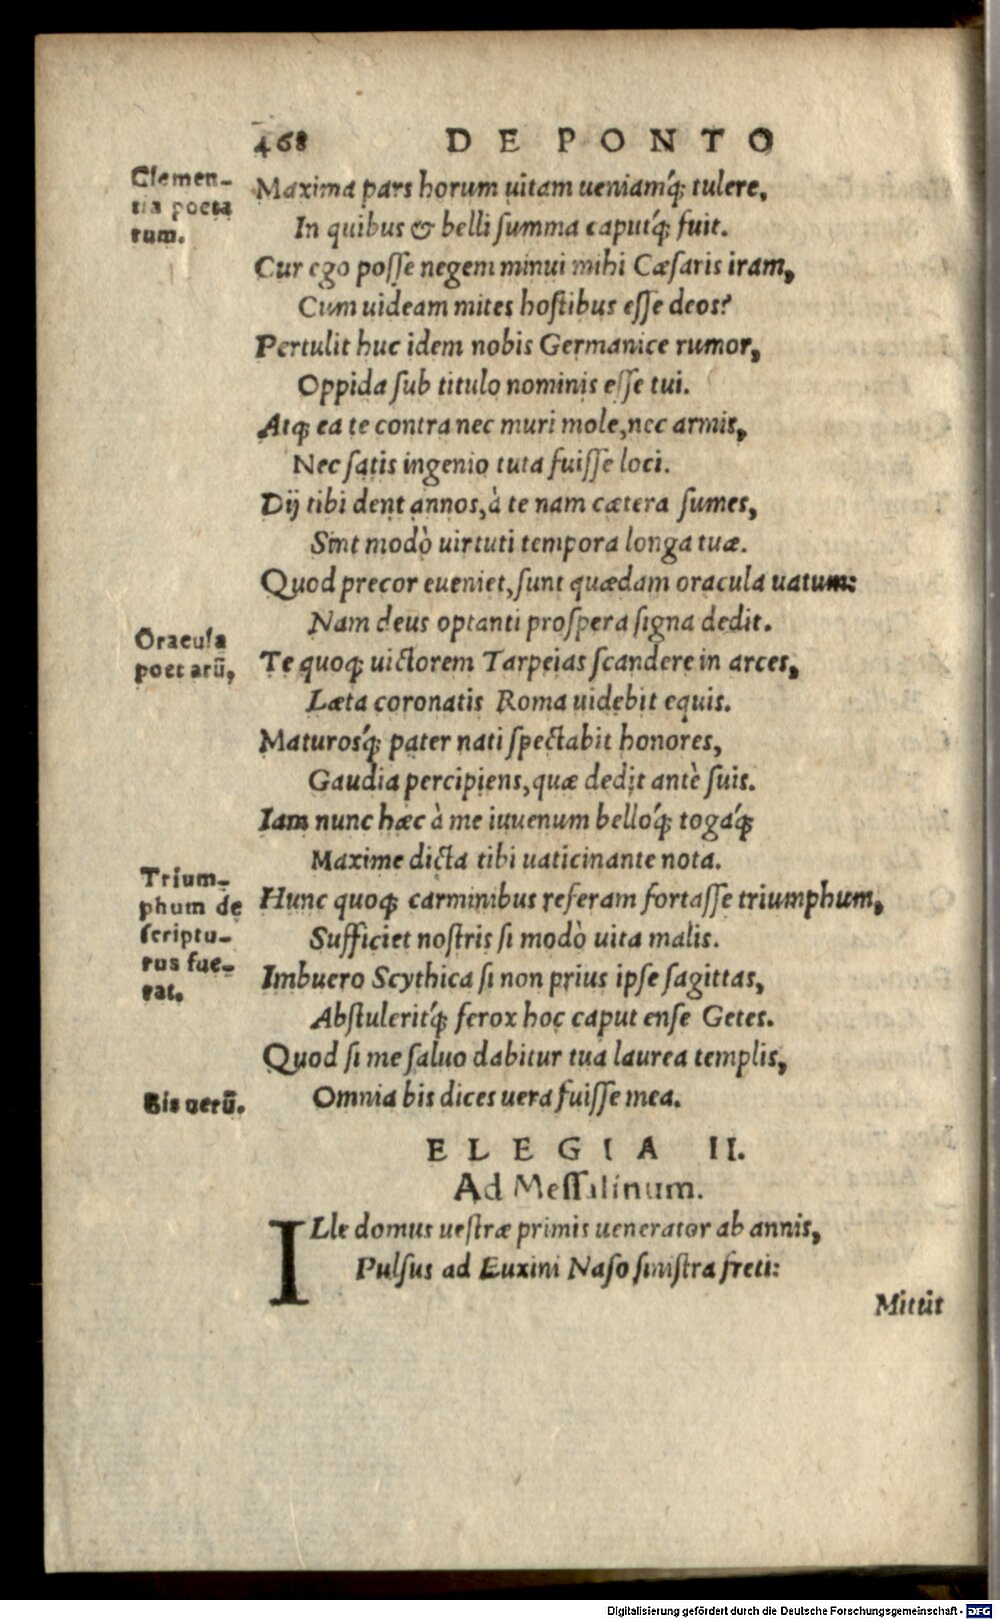 468 DE PONTO
Clemen-
tia poeta
rum.
Maxima pars horum uitam ueniamq́; tulere,
In quibus & belli summa caputq́; fuit.
Cur ego posse negem minui mihi Cæsaris iram,
Cum uideam mites hostibus esse deos?
Pertulit huc idem nobis Germanice rumor,
Oppida sub titulo nominis esse tui.
Atq; ea te contra nec muri mole, nec armis,
Nec satis ingenio tuta fuisse loci.
Dij tibi dent annos, à te nam cætera sumes,
Sint modò uirtuti tempora longa tuæ.
Quod precor eueniet, sunt quædam oracula uatum:
Nam deus optanti prospera signa dedit.
Oracula
poetarū,
Te quoq; uictorem Tarpeias scandere in arces,
Læta coronatis Roma uidebit equis.
Maturosq́; pater nati spectabit honores,
Gaudia percipiens, quæ dedit antè suis.
Iam nunc hæc à me iuuenum belloq́; togaq́;
Maxime dicta tibi uaticinante nota.
Trium-
phum de
scriptu-
rus fue-
rat.
Hunc quoq; carminibus referam fortasse triumphum,
Sufficiet nostris si modò uita malis.
Imbuero Scythica si non prius ipse sagittas,
Abstuleritq́; ferox hoc caput ense Getes.
Quod si me saluo dabitur tua laurea templis,
Omnia bis dices uera fuisse mea.
Bis uerū.
ELEGIA II.
Ad Messalinum.
ILle domus uestræ primis uenerator ab annis,
Pulsus ad Euxini Naso sinistra freti:
Mittit
Digitalisierung gefördert durch die Deutsche Forschungsgemeinschaft - DFG